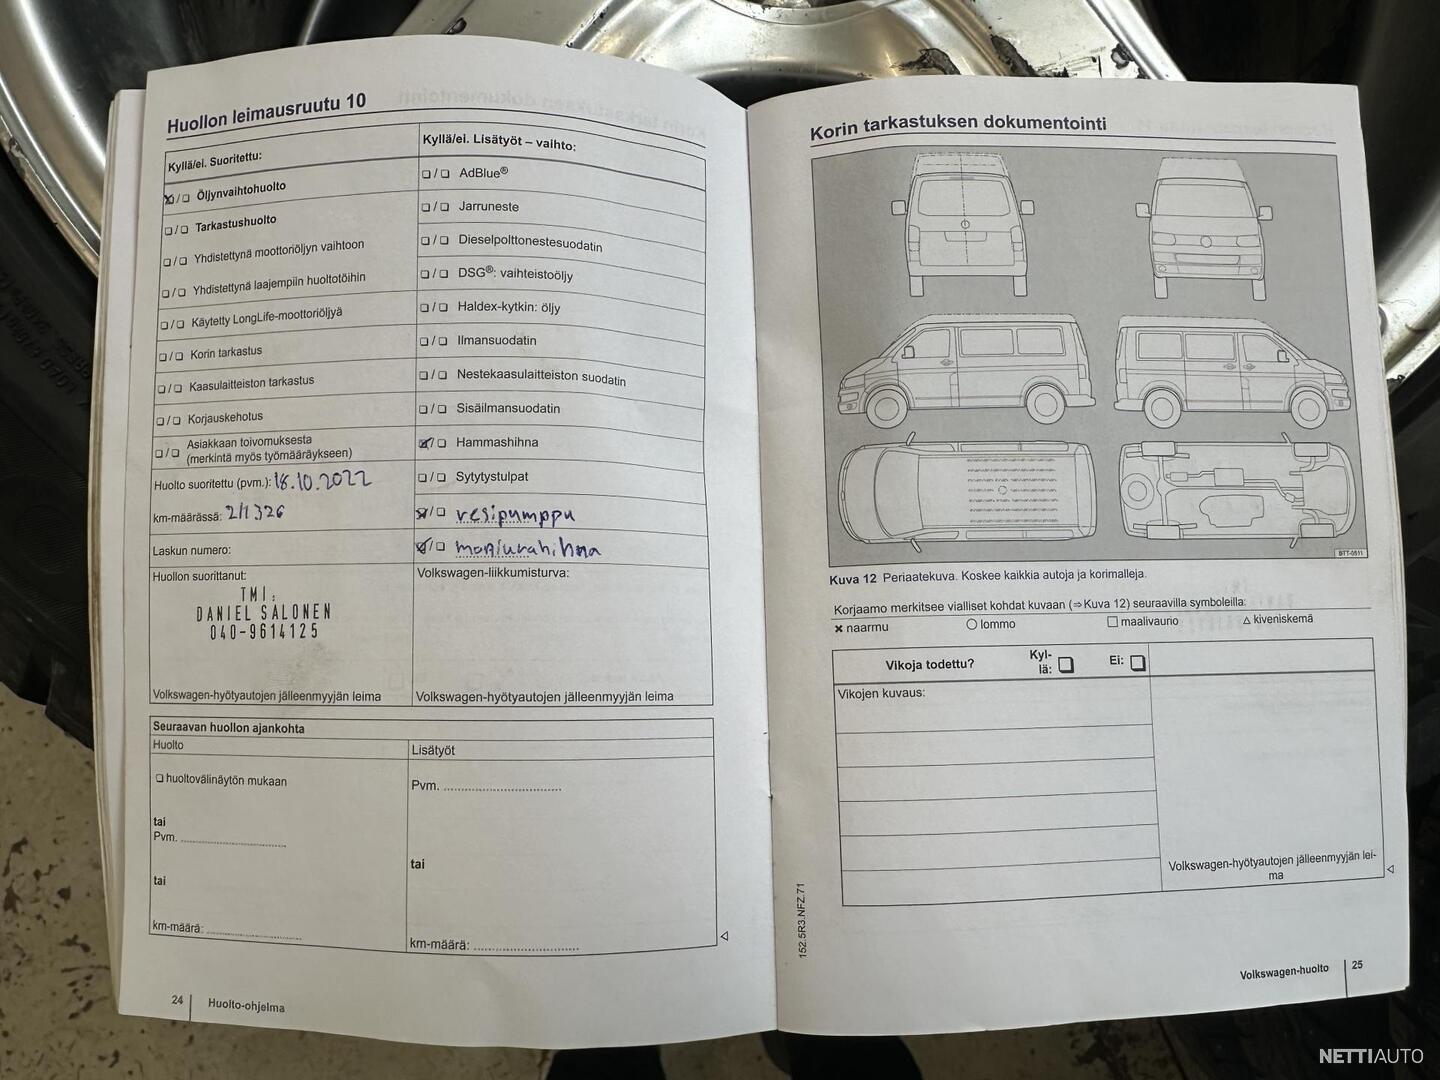 Huollon leimausruutu 10
Kyllä/ei. Suoritettu:
Öljynvaihtohuolto
Tarkastushuolto
Yhdistettynä moottoriöljyn vaihtoon
Yhdistettynä laajempiin huoltotöihin
Käytetty LongLife-moottoriöljyä
Korin tarkastus
Kaasulaitteiston tarkastus
Korjauskehotus
Asiakkaan toivomuksesta
(merkintä myös työmääräykseen)
Huolto suoritettu (pvm.): 18.10.2022
km-määrässä: 211326
Laskun numero:
Huollon suorittanut:
TMI:
DANIEL SALONEN
040-9614125
Volkswagen-hyötyautojen jälleenmyyjän leima
Kyllä/ei. Lisätyöt – vaihto:
AdBlue®
Jarruneste
Dieselpolttonestesuodatin
DSG®: vaihteistoöljy
Haldex-kytkin: öljy
Ilmansuodatin
Nestekaasulaitteiston suodatin
Sisäilmansuodatin
Hammashihna
Sytytystulpat
vesipumppu
moniurahihna
Volkswagen-liikkumisturva:
Volkswagen-hyötyautojen jälleenmyyjän leima
Seuraavan huollon ajankohta
Huolto
huoltovälinäytön mukaan
tai
Pvm.
tai
km-määrä:
Lisätyöt
Pvm.
tai
km-määrä:
24 Huolto-ohjelma
Korin tarkastuksen dokumentointi
BTT-0511
Kuva 12 Periaatekuva. Koskee kaikkia autoja ja korimalleja.
Korjaamo merkitsee vialliset kohdat kuvaan (⇒Kuva 12) seuraavilla symboleilla:
× naarmu ○ lommo □ maalivaurio △ kiveniskemä
Vikoja todettu? Kyl-
lä: Ei:
Vikojen kuvaus:
Volkswagen-hyötyautojen jälleenmyyjän lei-
ma
152.5R3.NFZ.71
Volkswagen-huolto 25
NETTIAUTO